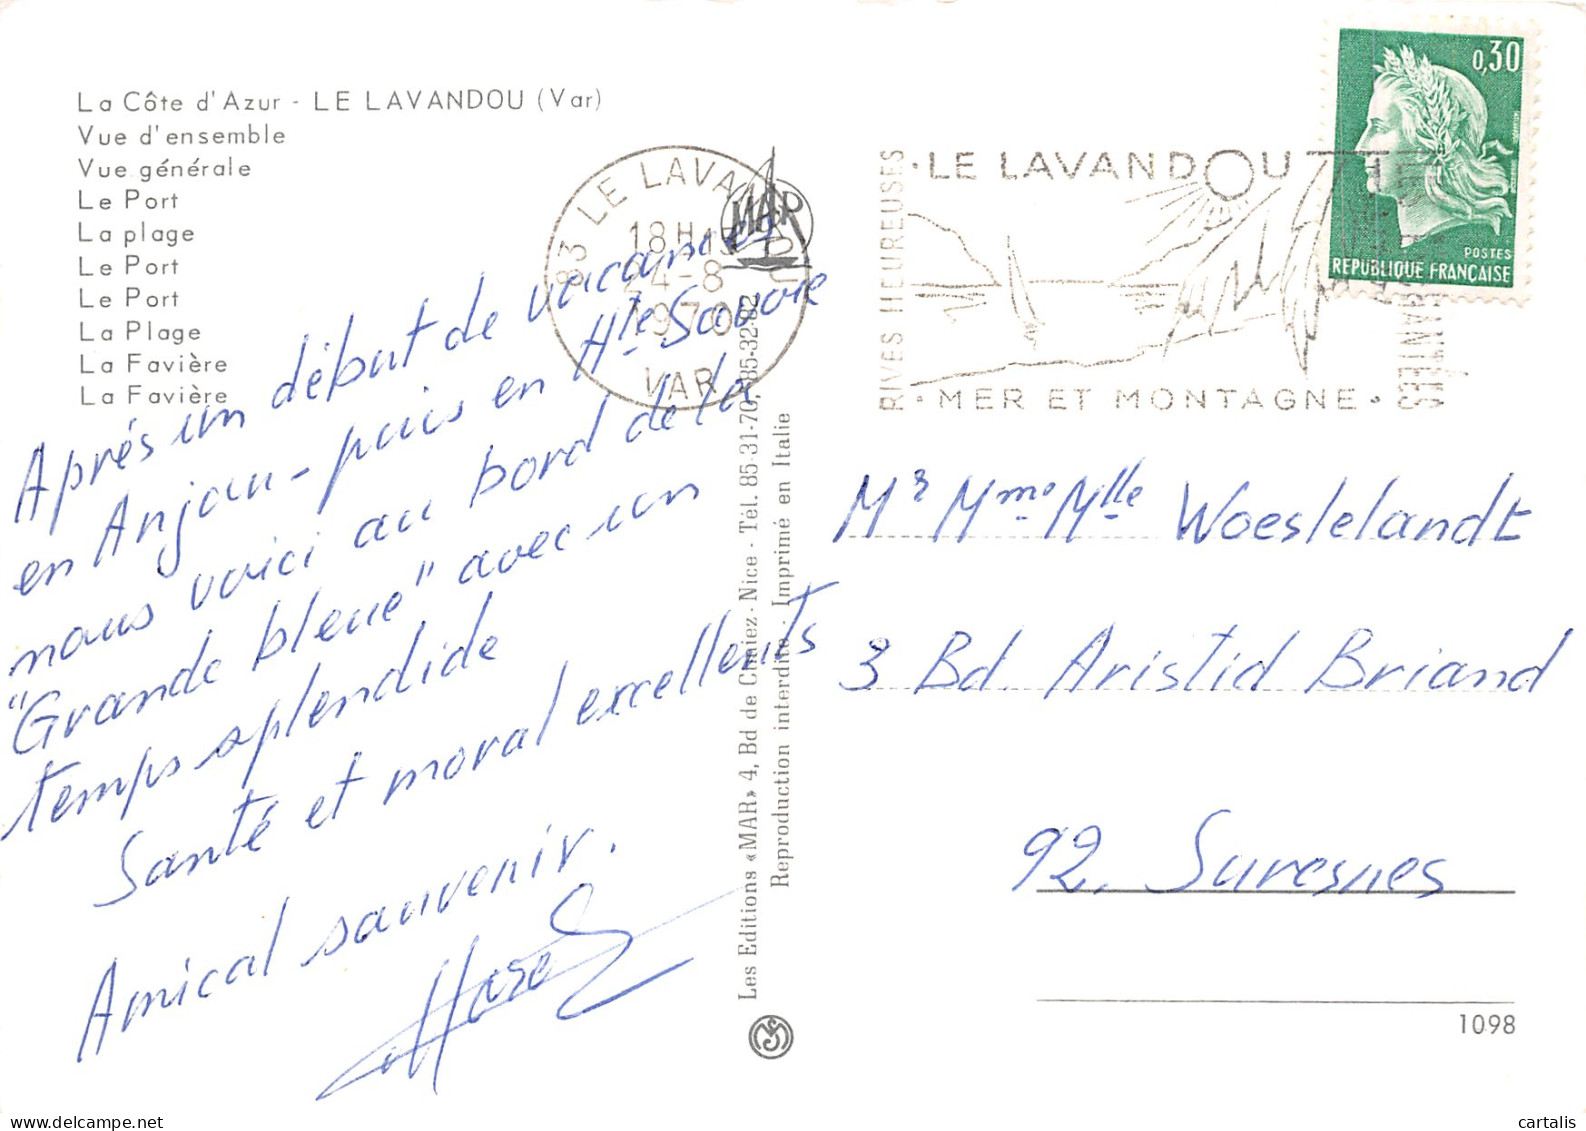 La Côte d'Azur - LE LAVANDOU (Var)
Vue d'ensemble
Vue générale
Le Port
La plage
Le Port
Le Port
La Plage
La Favière
La Favière
Après un début de vacances
en Anjou - puis en Hte Savoie
nous voici au bord de la
"Grande bleue" avec un
temps splendide
Santé et moral excellents
Amical souvenir.
83 LE LAVANDOU
18H
24-8
1970
VAR
MAR
Les Editions «MAR» 4, Bd de Cimiez - Nice - Tél. 85-31-70, 85-32-82
Reproduction interdite - Imprimé en Italie
RIVES HEUREUSES
· LE LAVANDOU
· MER ET MONTAGNE ·
0,30
POSTES
REPUBLIQUE FRANÇAISE
Mr Mme Mlle Woeslelandt
3 Bd. Aristid Briand
92. Suresnes
1098
cartalis